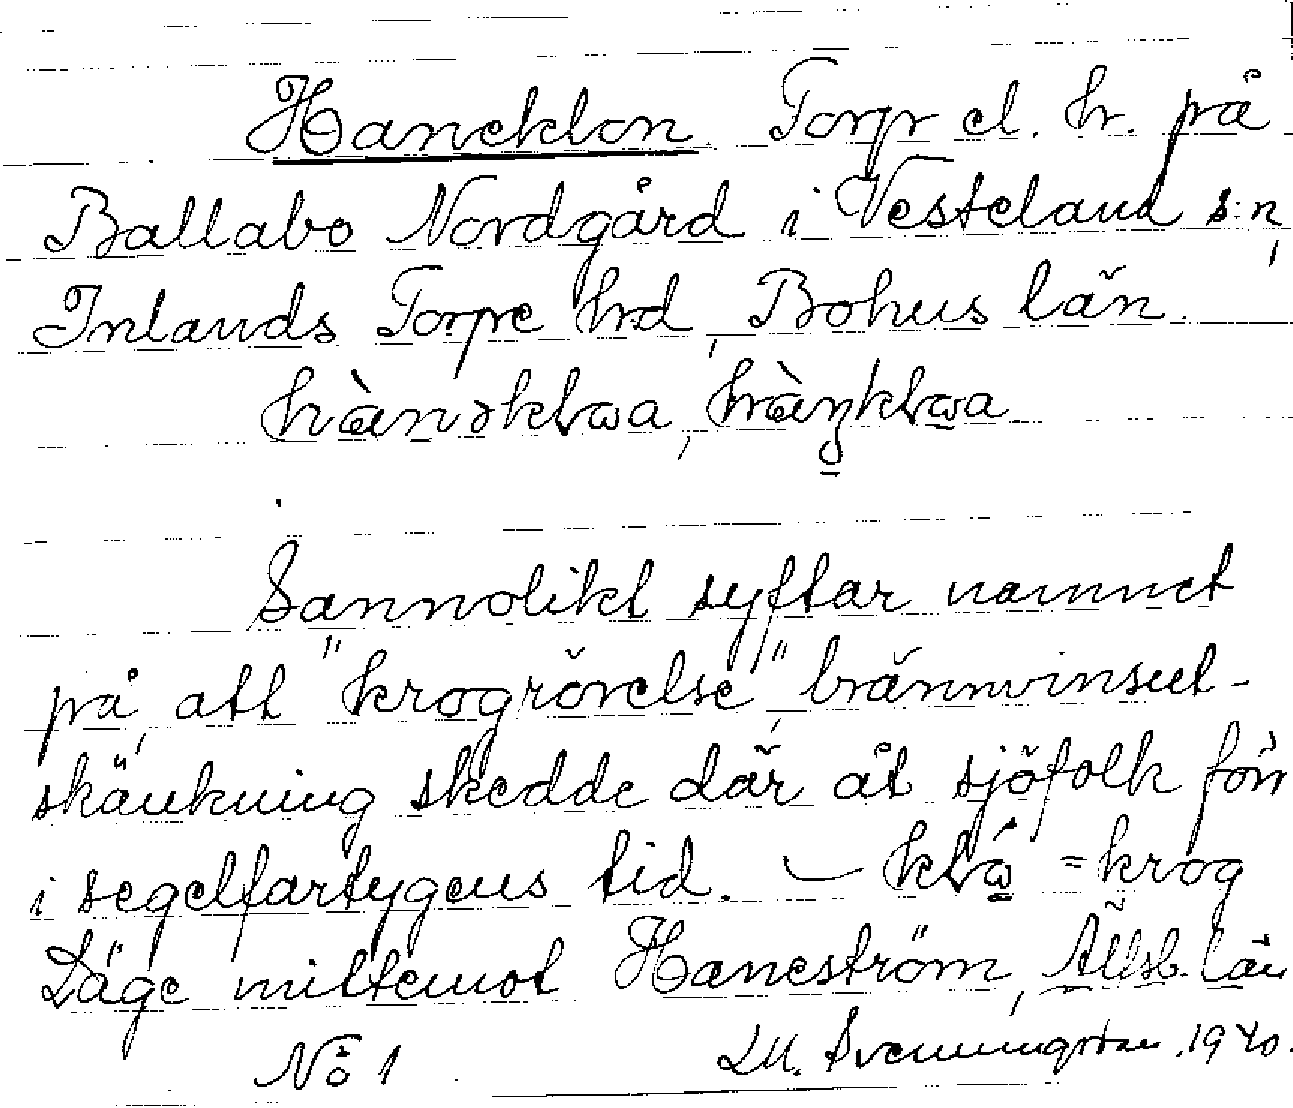 Haneklon Torp el. hr. på
Ballabo Nordgård i Vesteland s:n,
Inlands Torpe hrd, Bohus län.
hànəklωa, hàŋklωa
Sannolikt syftar namnet
på, att "krogrörelse", brännvinsut-
skänkning skedde där åt sjöfolk förr
i segelfartygens tid. – klώ = krog
Läge mittemot Haneström, Älvsb. län
No 1 Svenningstan. 1940.